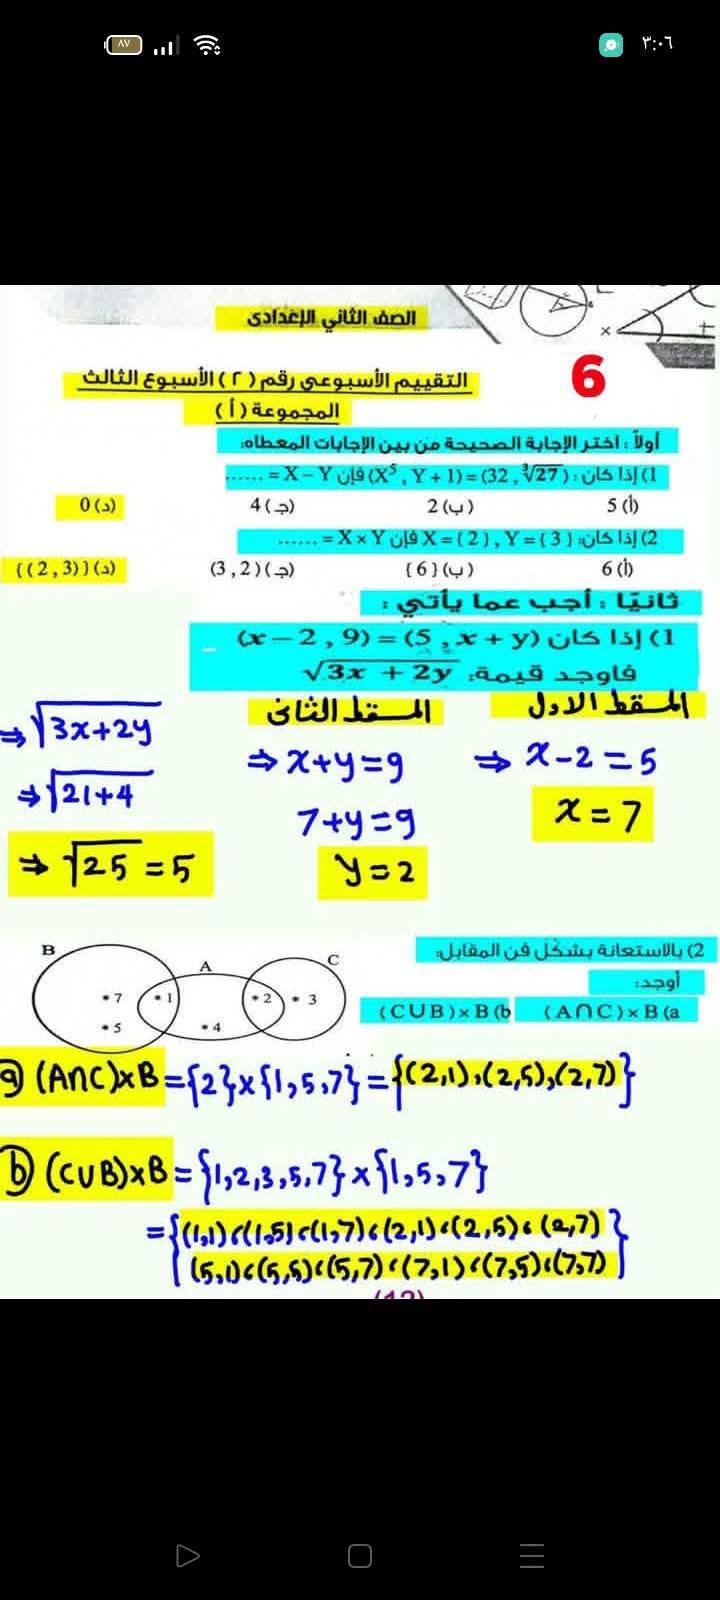 ٨٧
٣:٠٦
الصف الثاني الإعدادى
6
التقييم الأسبوعي رقم (٢) الأسبوع الثالث
المجموعة (أ)
أولاً : اختر الإجابة الصحيحة من بين الإجابات المعطاه:
1) إذا كان : (X⁵ , Y + 1) = (32 , ∛27) فإن X – Y = ......
(أ) 5 (ب) 2 (جـ) 4 (د) 0
2) إذا كان: X = {2} , Y = {3} فإن X × Y = ......
(أ) 6 (ب) {6} (جـ) (3 , 2) (د) {(2 , 3)}
ثانيًا : أجب عما يأتي :
1) إذا كان (x – 2 , 9) = (5 , x + y)
فاوجد قيمة: √3x + 2y
المسقط الاول
⇒ x-2=5
x=7
المسقط الثانى
⇒ x+y=9
7+y=9
y=2
⇒ √3x+2y
⇒ √21+4
⇒ √25 = 5
2) بالاستعانة بشكل فن المقابل:
أوجد:
a) (A∩C)×B b) (C∪B)×B
B A C
• 7 • 1 • 2 • 3
• 5 • 4
a) (A∩C)×B = {2}×{1,5,7} = {(2,1),(2,5),(2,7)}
b) (C∪B)×B = {1,2,3,5,7}×{1,5,7}
= {(1,1)،(1,5)،(1,7)،(2,1)،(2,5)،(2,7)
(5,1)،(5,5)،(5,7)،(7,1)،(7,5)،(7,7)}